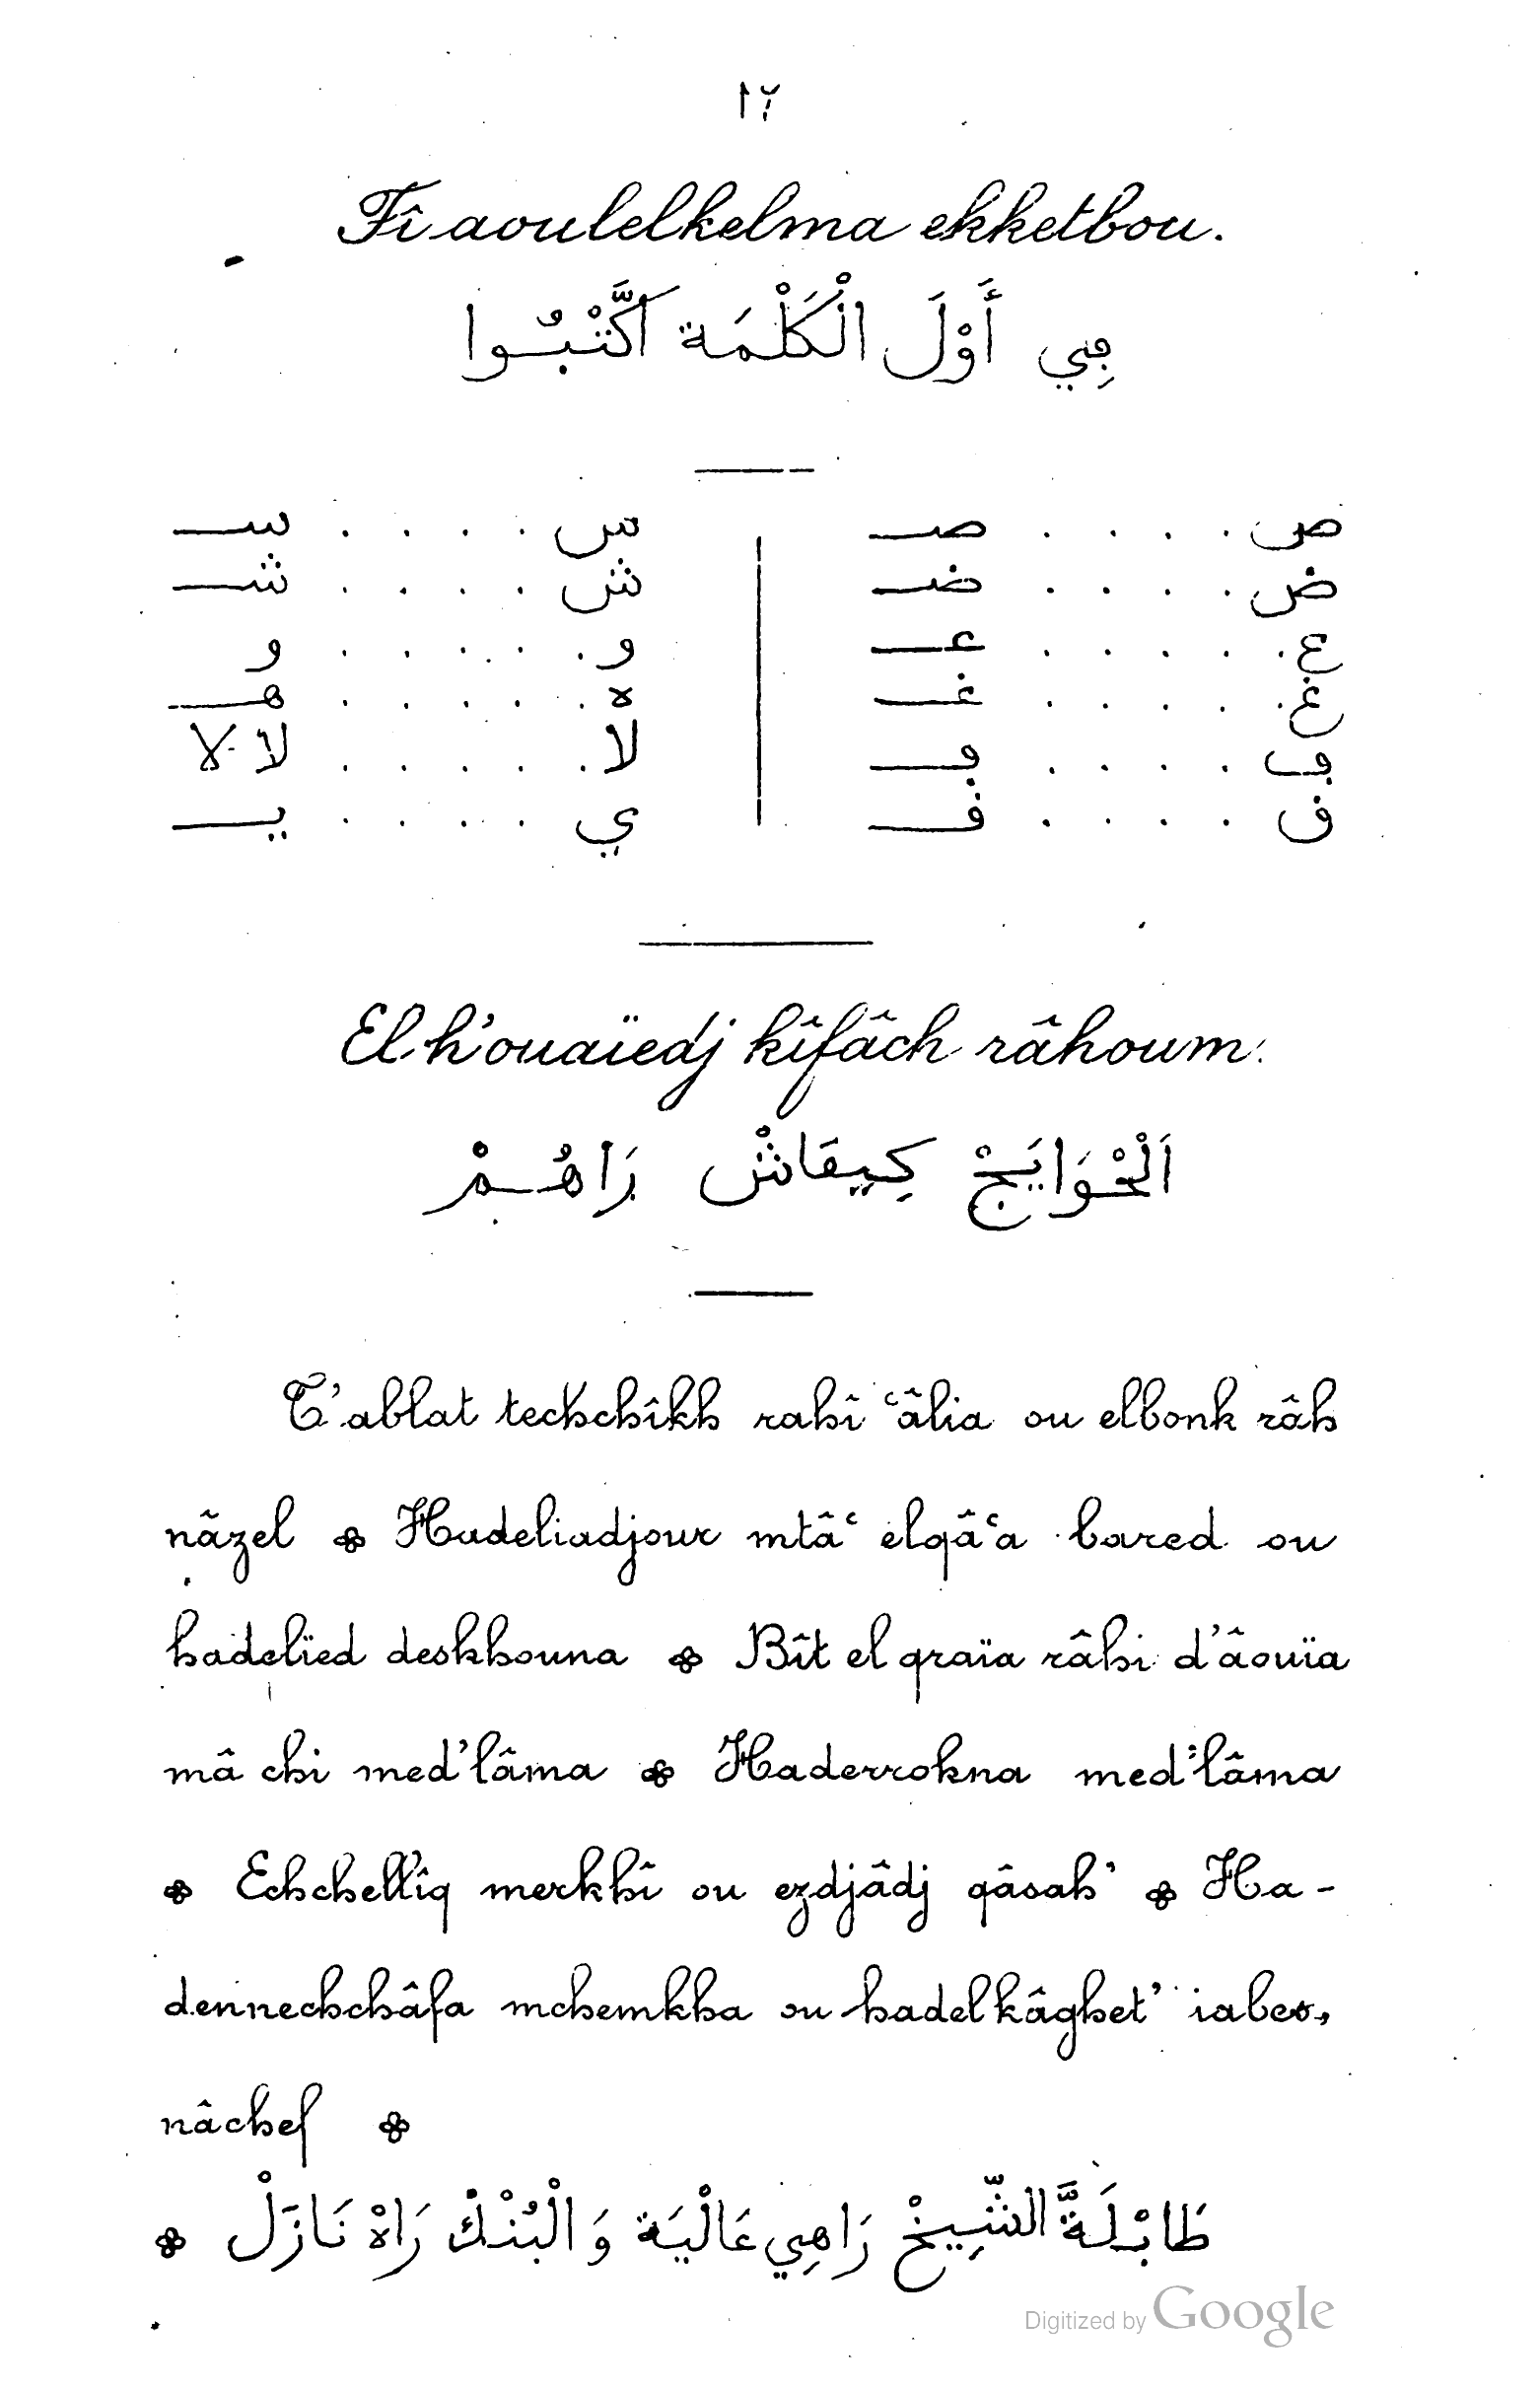 ١٢
Fî aoulelkelma ekketbou.
ڢِي أَوَّلَ الْكَلْمَة اَكَّتْبُوا
ص . . . . صـ | س . . . . سـ
ض . . . . ضـ | ش . . . . شـ
ع . . . . . عـ | و . . . . . و
غ . . . . . غـ | ه . . . . . هـ
ڢ . . . . ڢـ | لا . . . . . لا ـلا
ف . . . . فـ | ي . . . . يـ
El-h'ouaïedj kîfâch râhoum.
اَلْحْوَايَجْ كِيڢَاشْ رَاهُمْ
T'ablat techchîkh rahî ʿâlia ou elbonk râh
nâzel ✤ Hadeliadjour mtâʿ elqâʿa bared ou
hadelïed deskhouna ✤ Bît el qraïa râhi d'âouïa
mâ chi med'lâma ✤ Haderrokna med'lâma
✤ Echchellîq merkhî ou ezdjâdj qâsah' ✤ Ha-
dennechchâfa mchemkha ou hadelkâghet' iabes,
nâchef ✤
طَابْلَةَّ الشِّيخْ رَاهِي عَالْيَة وَ الْبُنْكْ رَاهْ نَازَلْ ✤
Digitized by Google